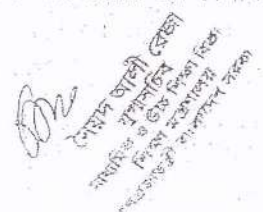 সৈয়দ আলী রেজা
উপসচিব
মাধ্যমিক ও উচ্চ শিক্ষা বিভাগ
শিক্ষা মন্ত্রণালয়
গণপ্রজাতন্ত্রী বাংলাদেশ সরকার